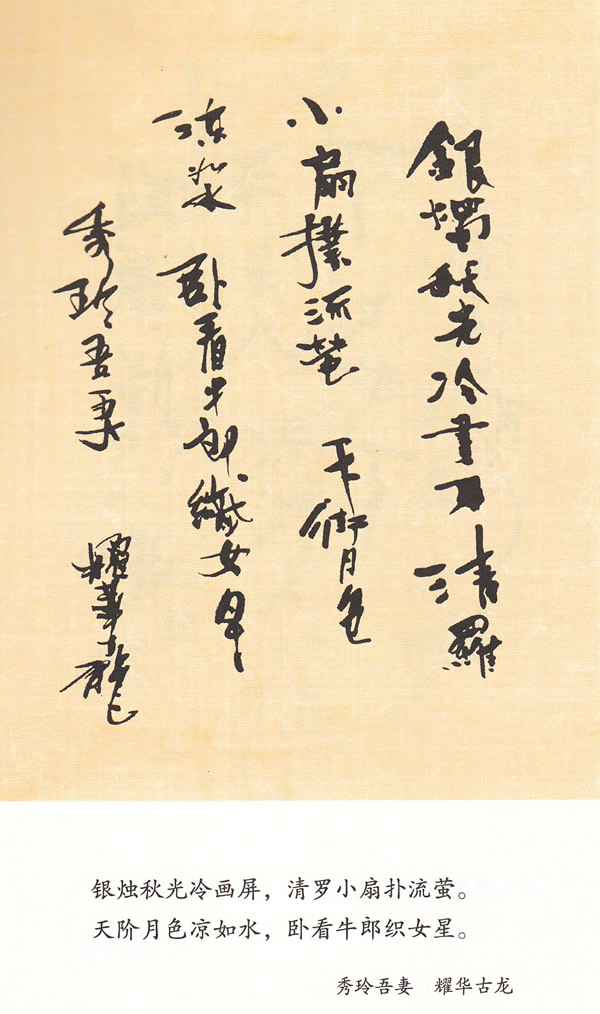 銀燭秋光冷畫屏 清羅
小扇撲流螢 天街月色
涼如水 卧看牛郎織女星
秀玲吾妻 耀華古龍
银烛秋光冷画屏，清罗小扇扑流萤。
天阶月色凉如水，卧看牛郎织女星。
秀玲吾妻 耀华古龙